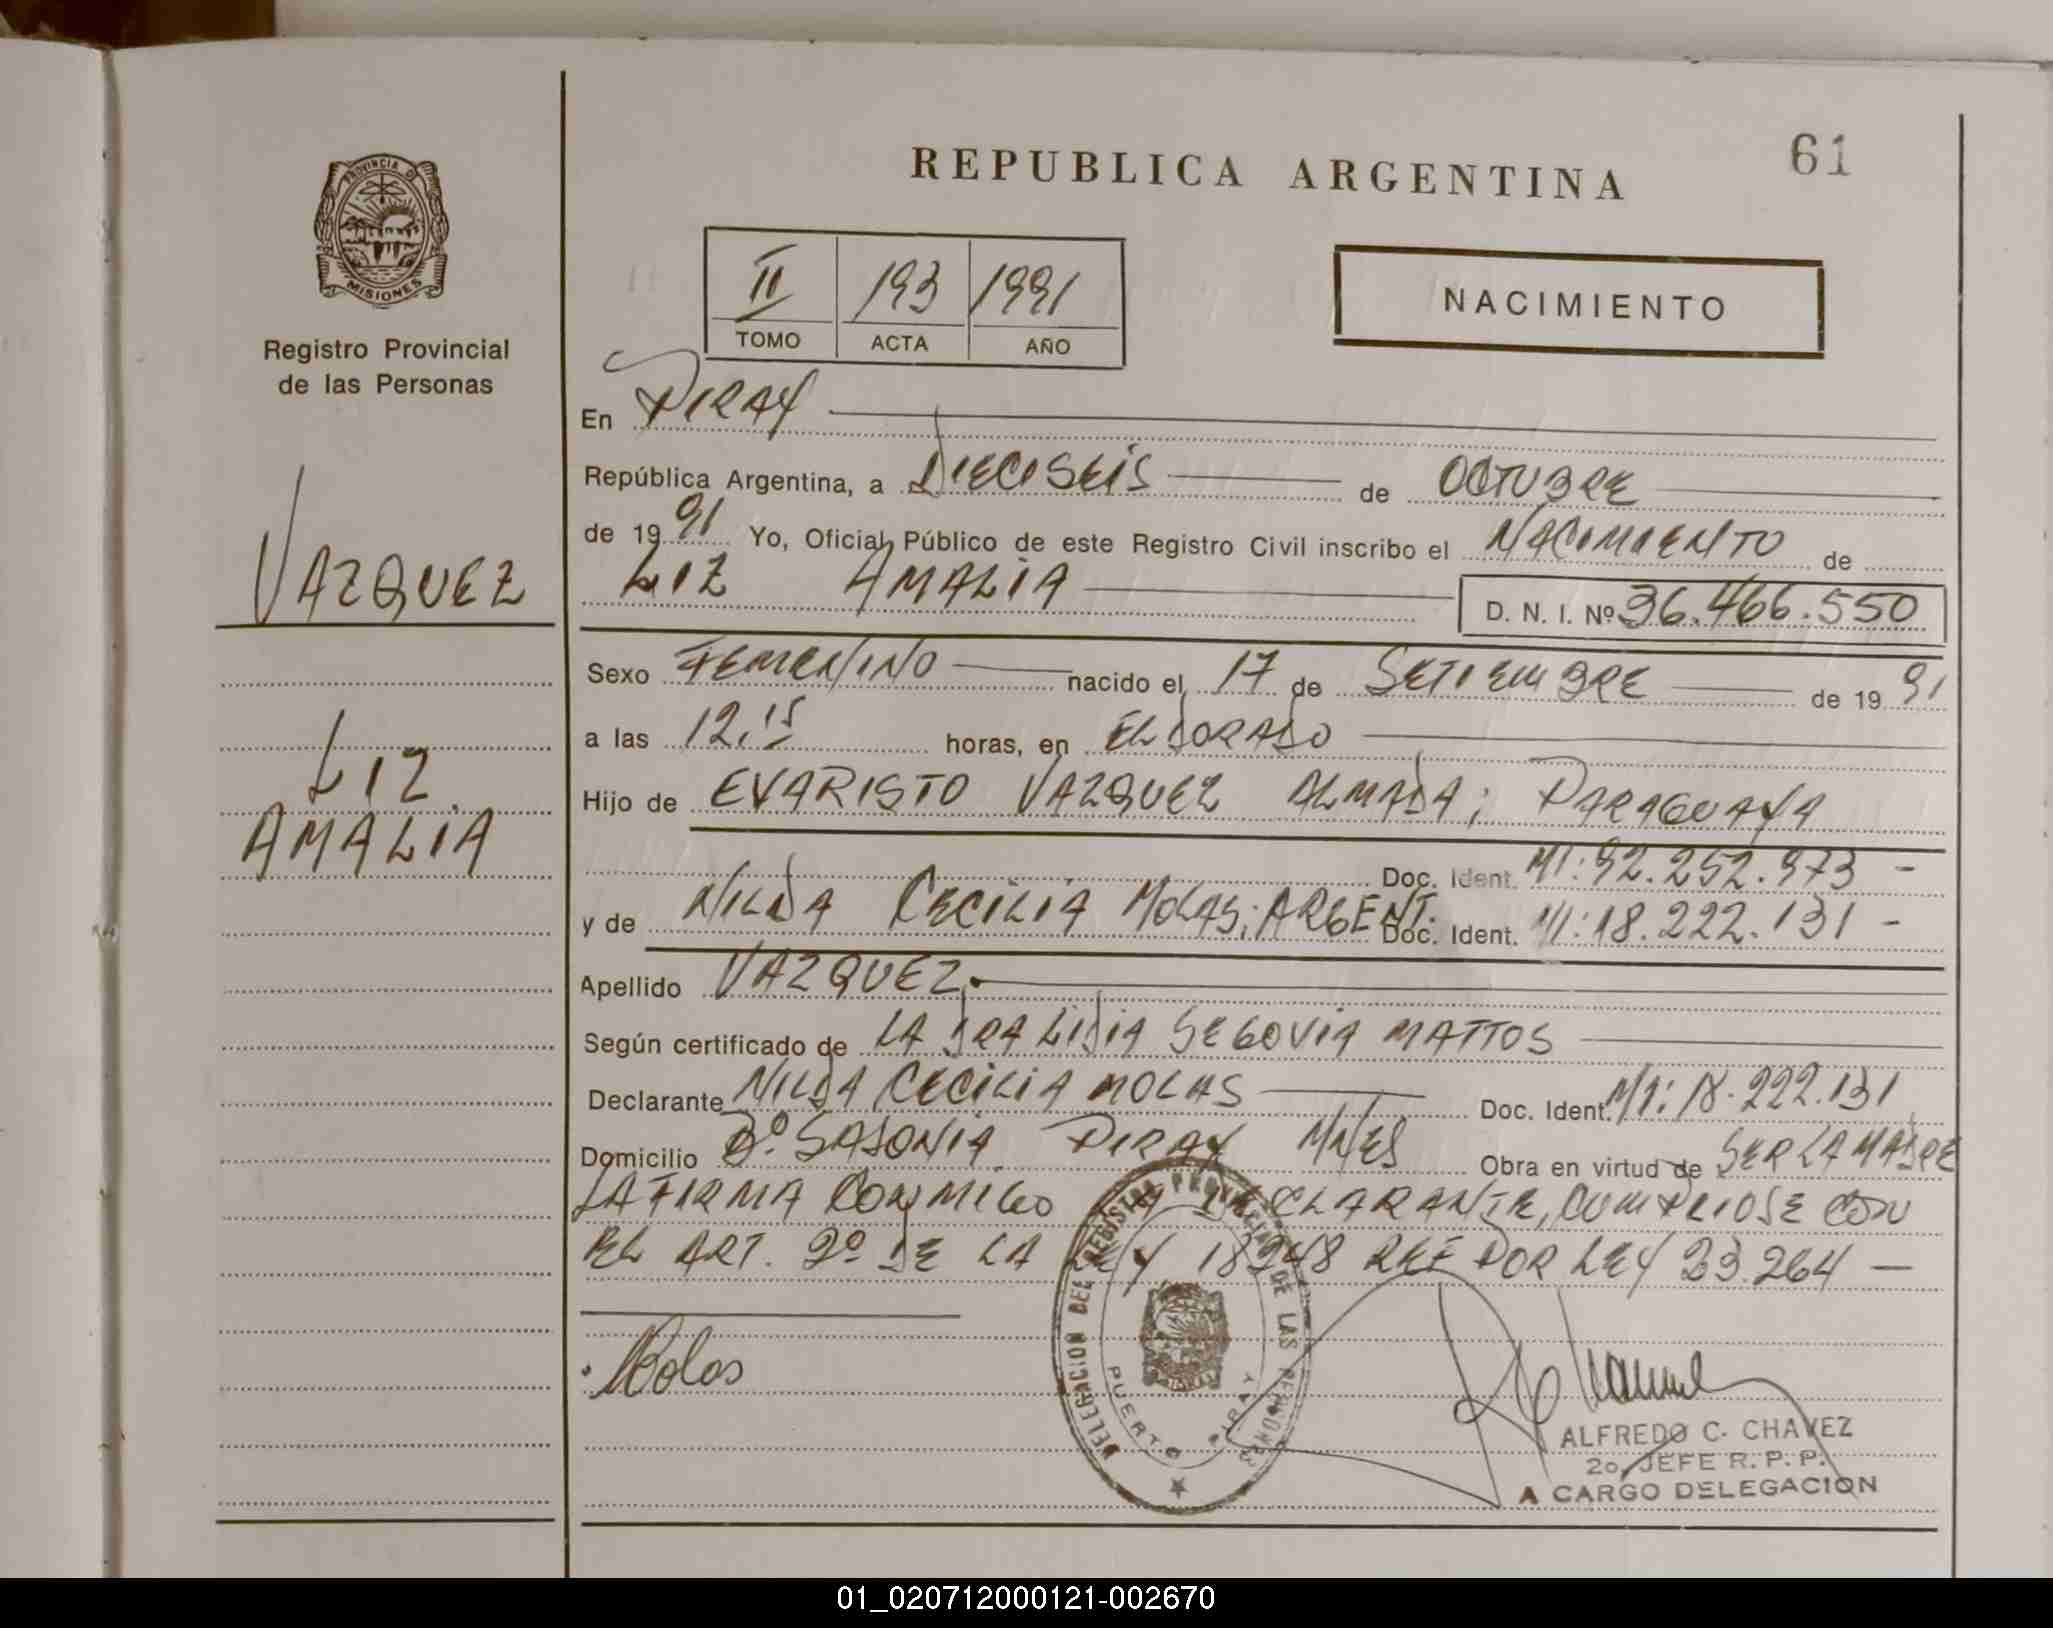 REPUBLICA ARGENTINA
61
PROVINCIA DE
MISIONES
Registro Provincial
de las Personas
VAZQUEZ
LIZ
AMALIA
II 193 1991
TOMO ACTA AÑO
NACIMIENTO
En PIRAY
República Argentina, a DIECISEIS de OCTUBRE
de 1991 Yo, Oficial Público de este Registro Civil inscribo el NACIMIENTO de
LIZ AMALIA D. N. I. Nº 36.466.550
Sexo FEMENINO nacido el 17 de SETIEMBRE de 1991
a las 12,15 horas, en ELDORADO
Hijo de EVARISTO VAZQUEZ ALMADA; PARAGUAYA
Doc. Ident. MI: 92.252.973 -
y de NILDA CECILIA MOLAS; ARGENT. Doc. Ident. MI: 18.222.131 -
Apellido VAZQUEZ.
Según certificado de LA DRA LIDIA SEGOVIA MATTOS
Declarante NILDA CECILIA MOLAS Doc. Ident. MI: 18.222.131
Domicilio Bº. SAJONIA PIRAY MNES Obra en virtud de SER LA MADRE
LA FIRMA CONMIGO LA DECLARANTE, CUMPLIOSE CON
EL ART. 2º DE LA LEY 18248 REF POR LEY 23.264 —
Molas
DELEGACION DEL REGISTRO PROVINCIAL DE LAS PERSONAS
PUERTO PIRAY
ALFREDO C. CHAVEZ
2o. JEFE R. P. P.
A CARGO DELEGACION
01_020712000121-002670